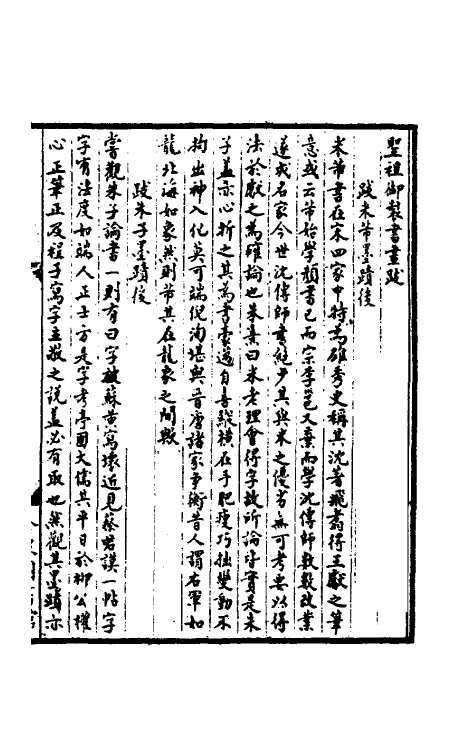 聖祖御製書畫跋
跋米芾墨蹟後
米芾書在宋四家中特為雄秀史稱其沈著飛翥得王獻之筆
意或云芾始學顏書已而宗李邕又棄而學沈傳師數數改業
遂成名家今世沈傳師書絶少其與米之優劣無可考要以得
法於獻之為確論也朱熹曰米老理會得字故所論皆實是朱
子蓋亦心折之其為書豪邁自喜縱橫在手肥瘦巧拙變動不
拘出神入化莫可端倪洵堪與晉唐諸家爭衡昔人謂右軍如
龍北海如象然則芾其在龍象之間歟
跋朱子墨蹟後
嘗觀朱子論書一則有曰字被蘇黃寫壞近見蔡君謨一帖字
字有法度如端人正士方是字考亭固大儒其平日於柳公權
心正筆正及程子寫字主敬之說蓋必有取也茲觀其墨蹟亦